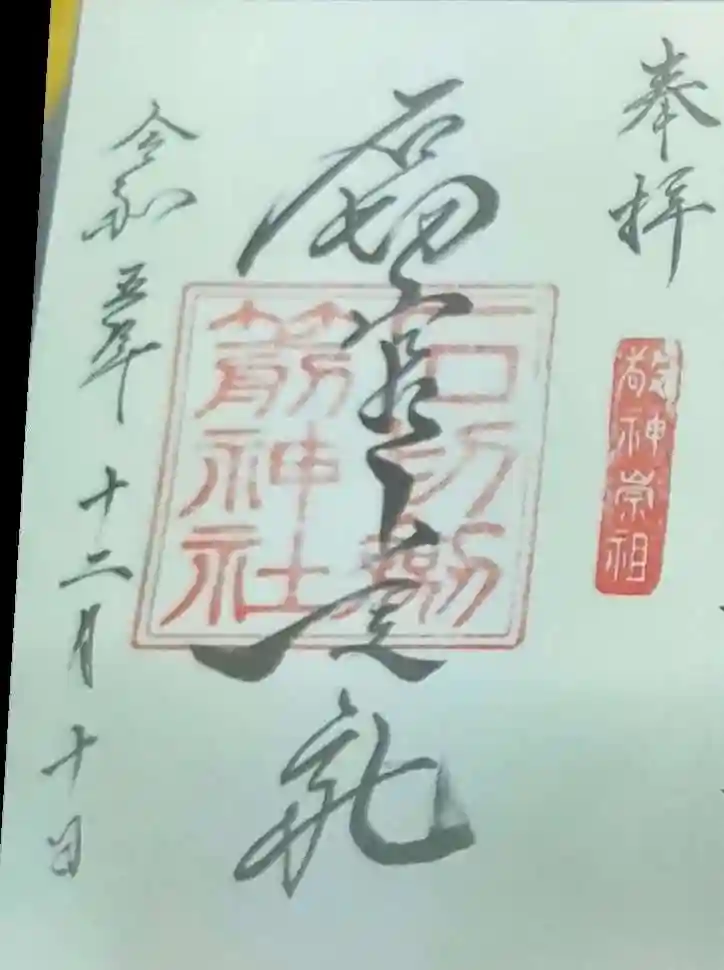 奉拝
敬神崇祖
石切宮上之社
石切劔
箭神社
令和五年十二月十日